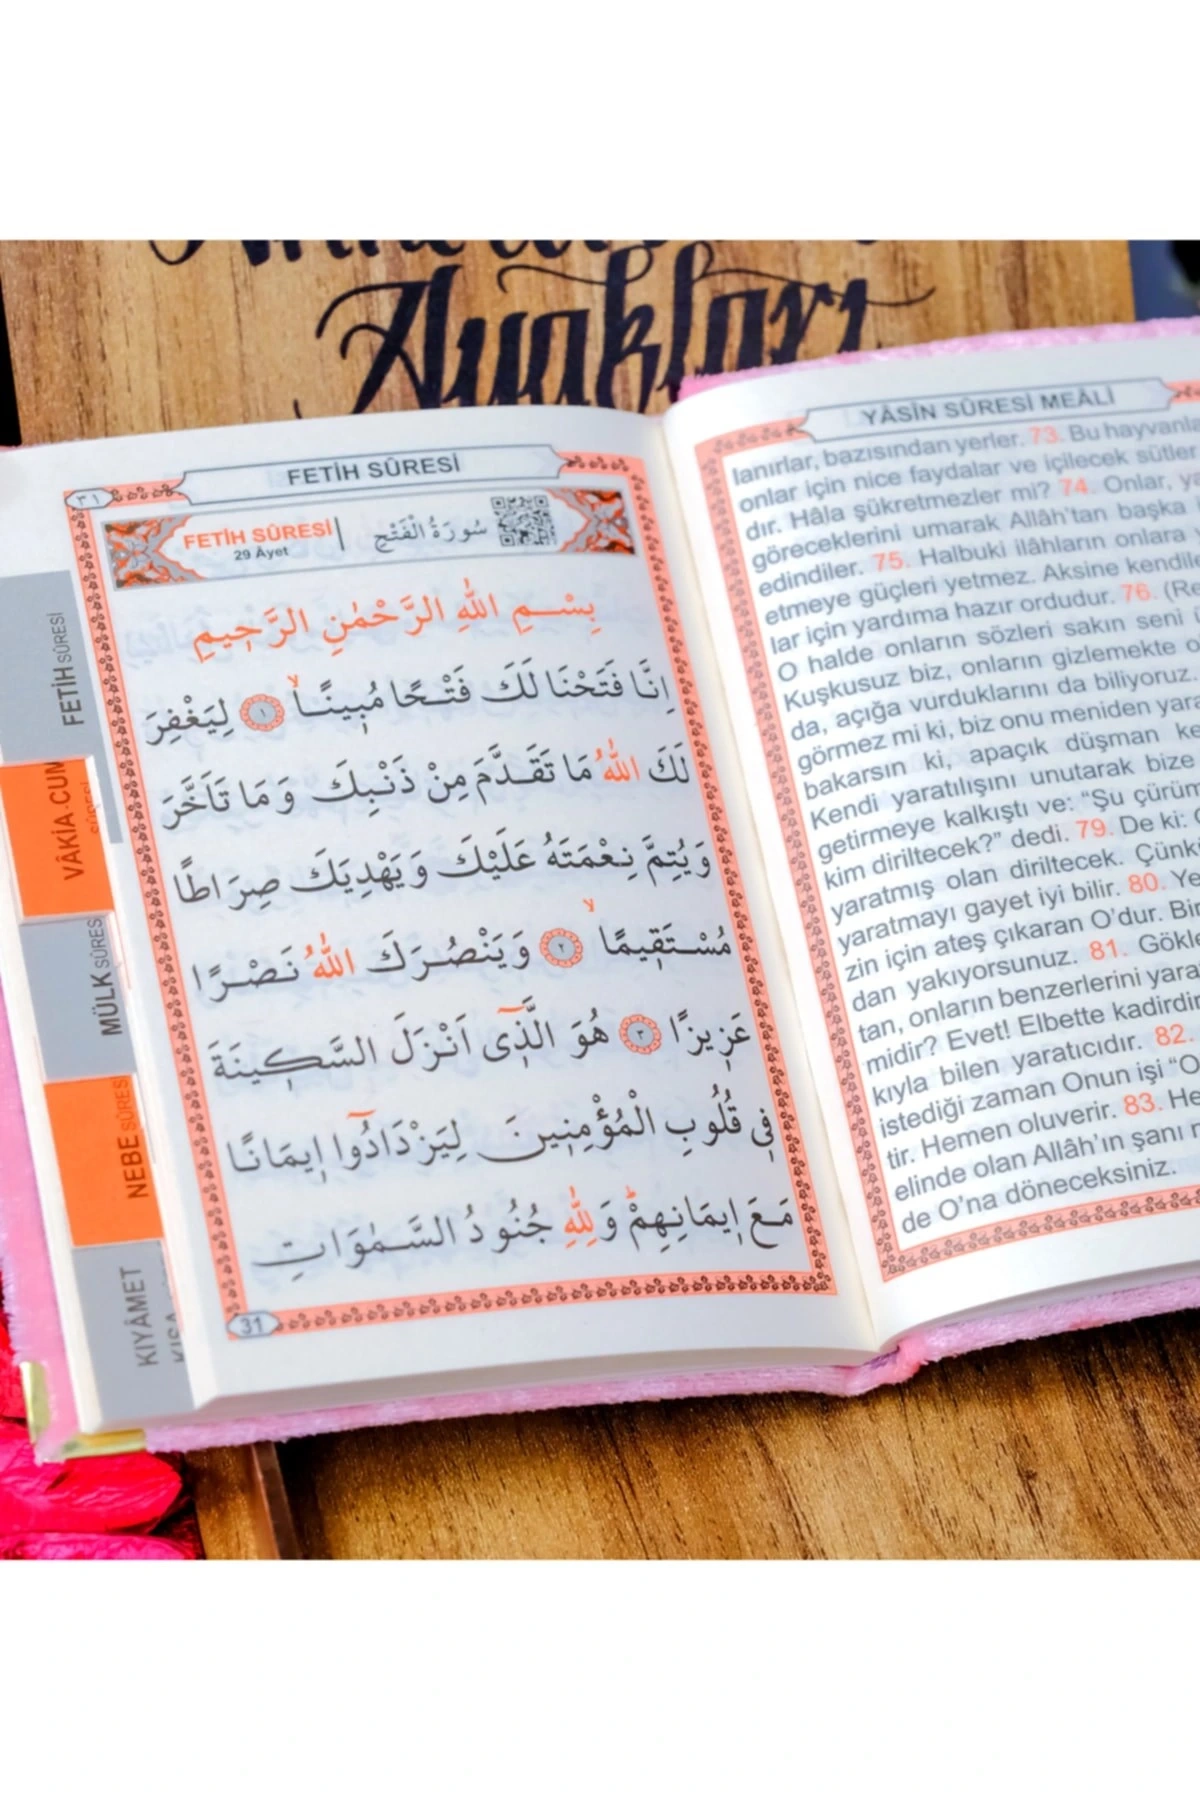 Ayakları
FETİH SÛRESİ
٣١
FETİH SÛRESİ
29 Âyet
سُورَةُ الْفَتْحِ
بِسْمِ اللهِ الرَّحْمٰنِ الرَّحِيمِ
اِنَّا فَتَحْنَا لَكَ فَتْحًا مُبِينًاۙ ﴿١﴾ لِيَغْفِرَ
لَكَ اللهُ مَا تَقَدَّمَ مِنْ ذَنْبِكَ وَمَا تَاَخَّرَ
وَيُتِمَّ نِعْمَتَهُ عَلَيْكَ وَيَهْدِيَكَ صِرَاطًا
مُسْتَقِيمًاۙ ﴿٢﴾ وَيَنْصُرَكَ اللهُ نَصْرًا
عَزِيزًا ﴿٣﴾ هُوَ الَّذِٓى اَنْزَلَ السَّكِينَةَ
فِى قُلُوبِ الْمُؤْمِنِينَ لِيَزْدَادُٓوا اِيمَانًا
مَعَ اِيمَانِهِمْۜ وَلِلّٰهِ جُنُودُ السَّمٰوَاتِ
31
FETİH SÛRESİ
VÂKIA.CUM
SÛRESİ
MÜLK SÛRES
NEBE SÛRES
KIYÂMET
YÂSÎN SÛRESİ MEÂLİ
lanırlar, bazısından yerler. 73. Bu hayvanla
onlar için nice faydalar ve içilecek sütler
dır. Hâla şükretmezler mi? 74. Onlar, ya
göreceklerini umarak Allâh’tan başka
edindiler. 75. Halbuki ilâhların onlara
etmeye güçleri yetmez. Aksine kendile
lar için yardıma hazır ordudur. 76. (Re
O halde onların sözleri sakın seni
Kuşkusuz biz, onların gizlemekte o
da, açığa vurduklarını da biliyoruz.
görmez mi ki, biz onu meniden yara
bakarsın ki, apaçık düşman ke
Kendi yaratılışını unutarak bize
getirmeye kalkıştı ve: “Şu çürüm
kim diriltecek?” dedi. 79. De ki:
yaratmış olan diriltecek. Çünkü
yaratmayı gayet iyi bilir. 80. Ye
zin için ateş çıkaran O’dur. Bir
dan yakıyorsunuz. 81. Gökle
tan, onların benzerlerini yara
midir? Evet! Elbette kadirdir
kıyla bilen yaratıcıdır. 82.
istediği zaman Onun işi “O
tir. Hemen oluverir. 83. He
elinde olan Allâh’ın şanı
de O’na döneceksiniz.